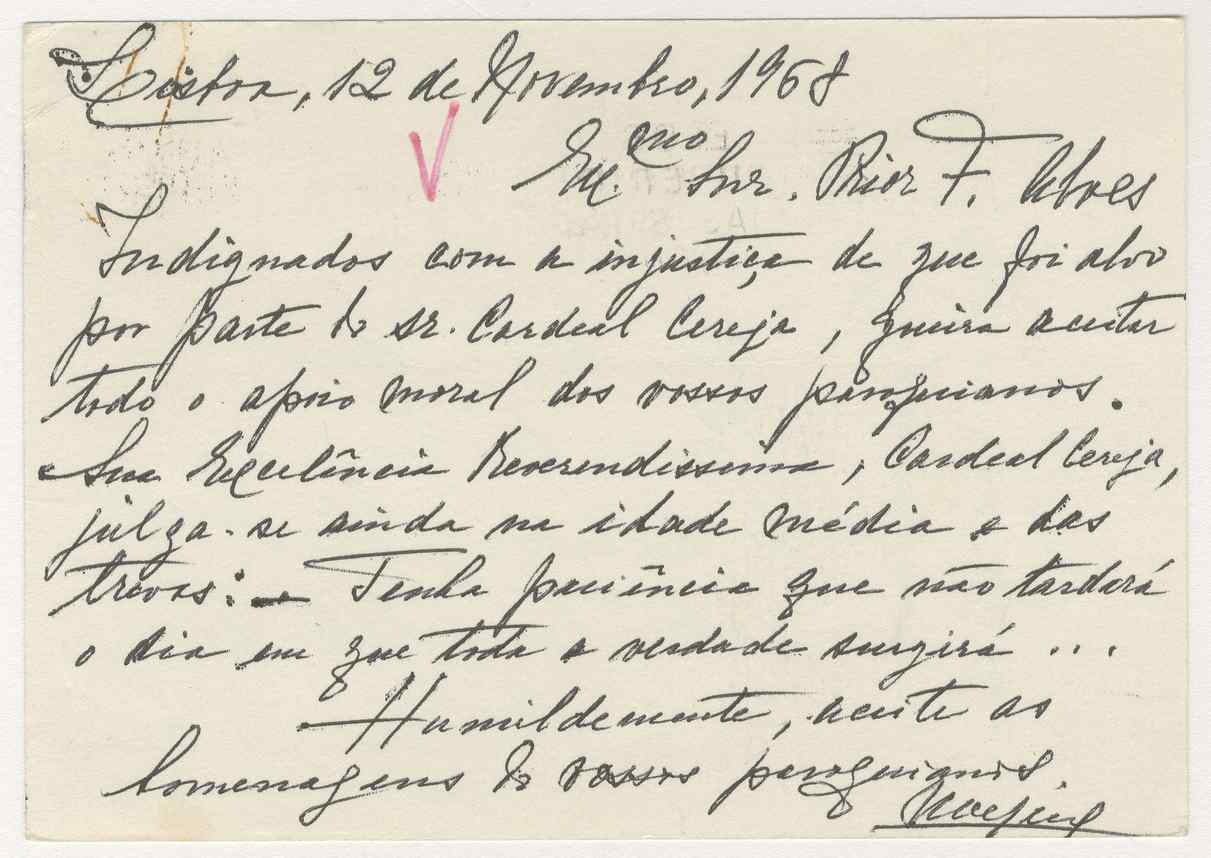 Lisboa, 12 de Novembro, 1968
Exmo Snr. Prior F. Alves
Indignados com a injustiça de que foi alvo
por parte do sr. Cardeal Cereja, queira aceitar
todo o apoio moral dos vossos paroquianos.
Sua Excelência Reverendissima, Cardeal Cereja,
julga-se ainda na idade média e das
trevas: — Tenha paciência que não tardará
o dia em que toda a verdade surgirá ...
Humildemente, aceite as
homenagens do vossos paroquianos.